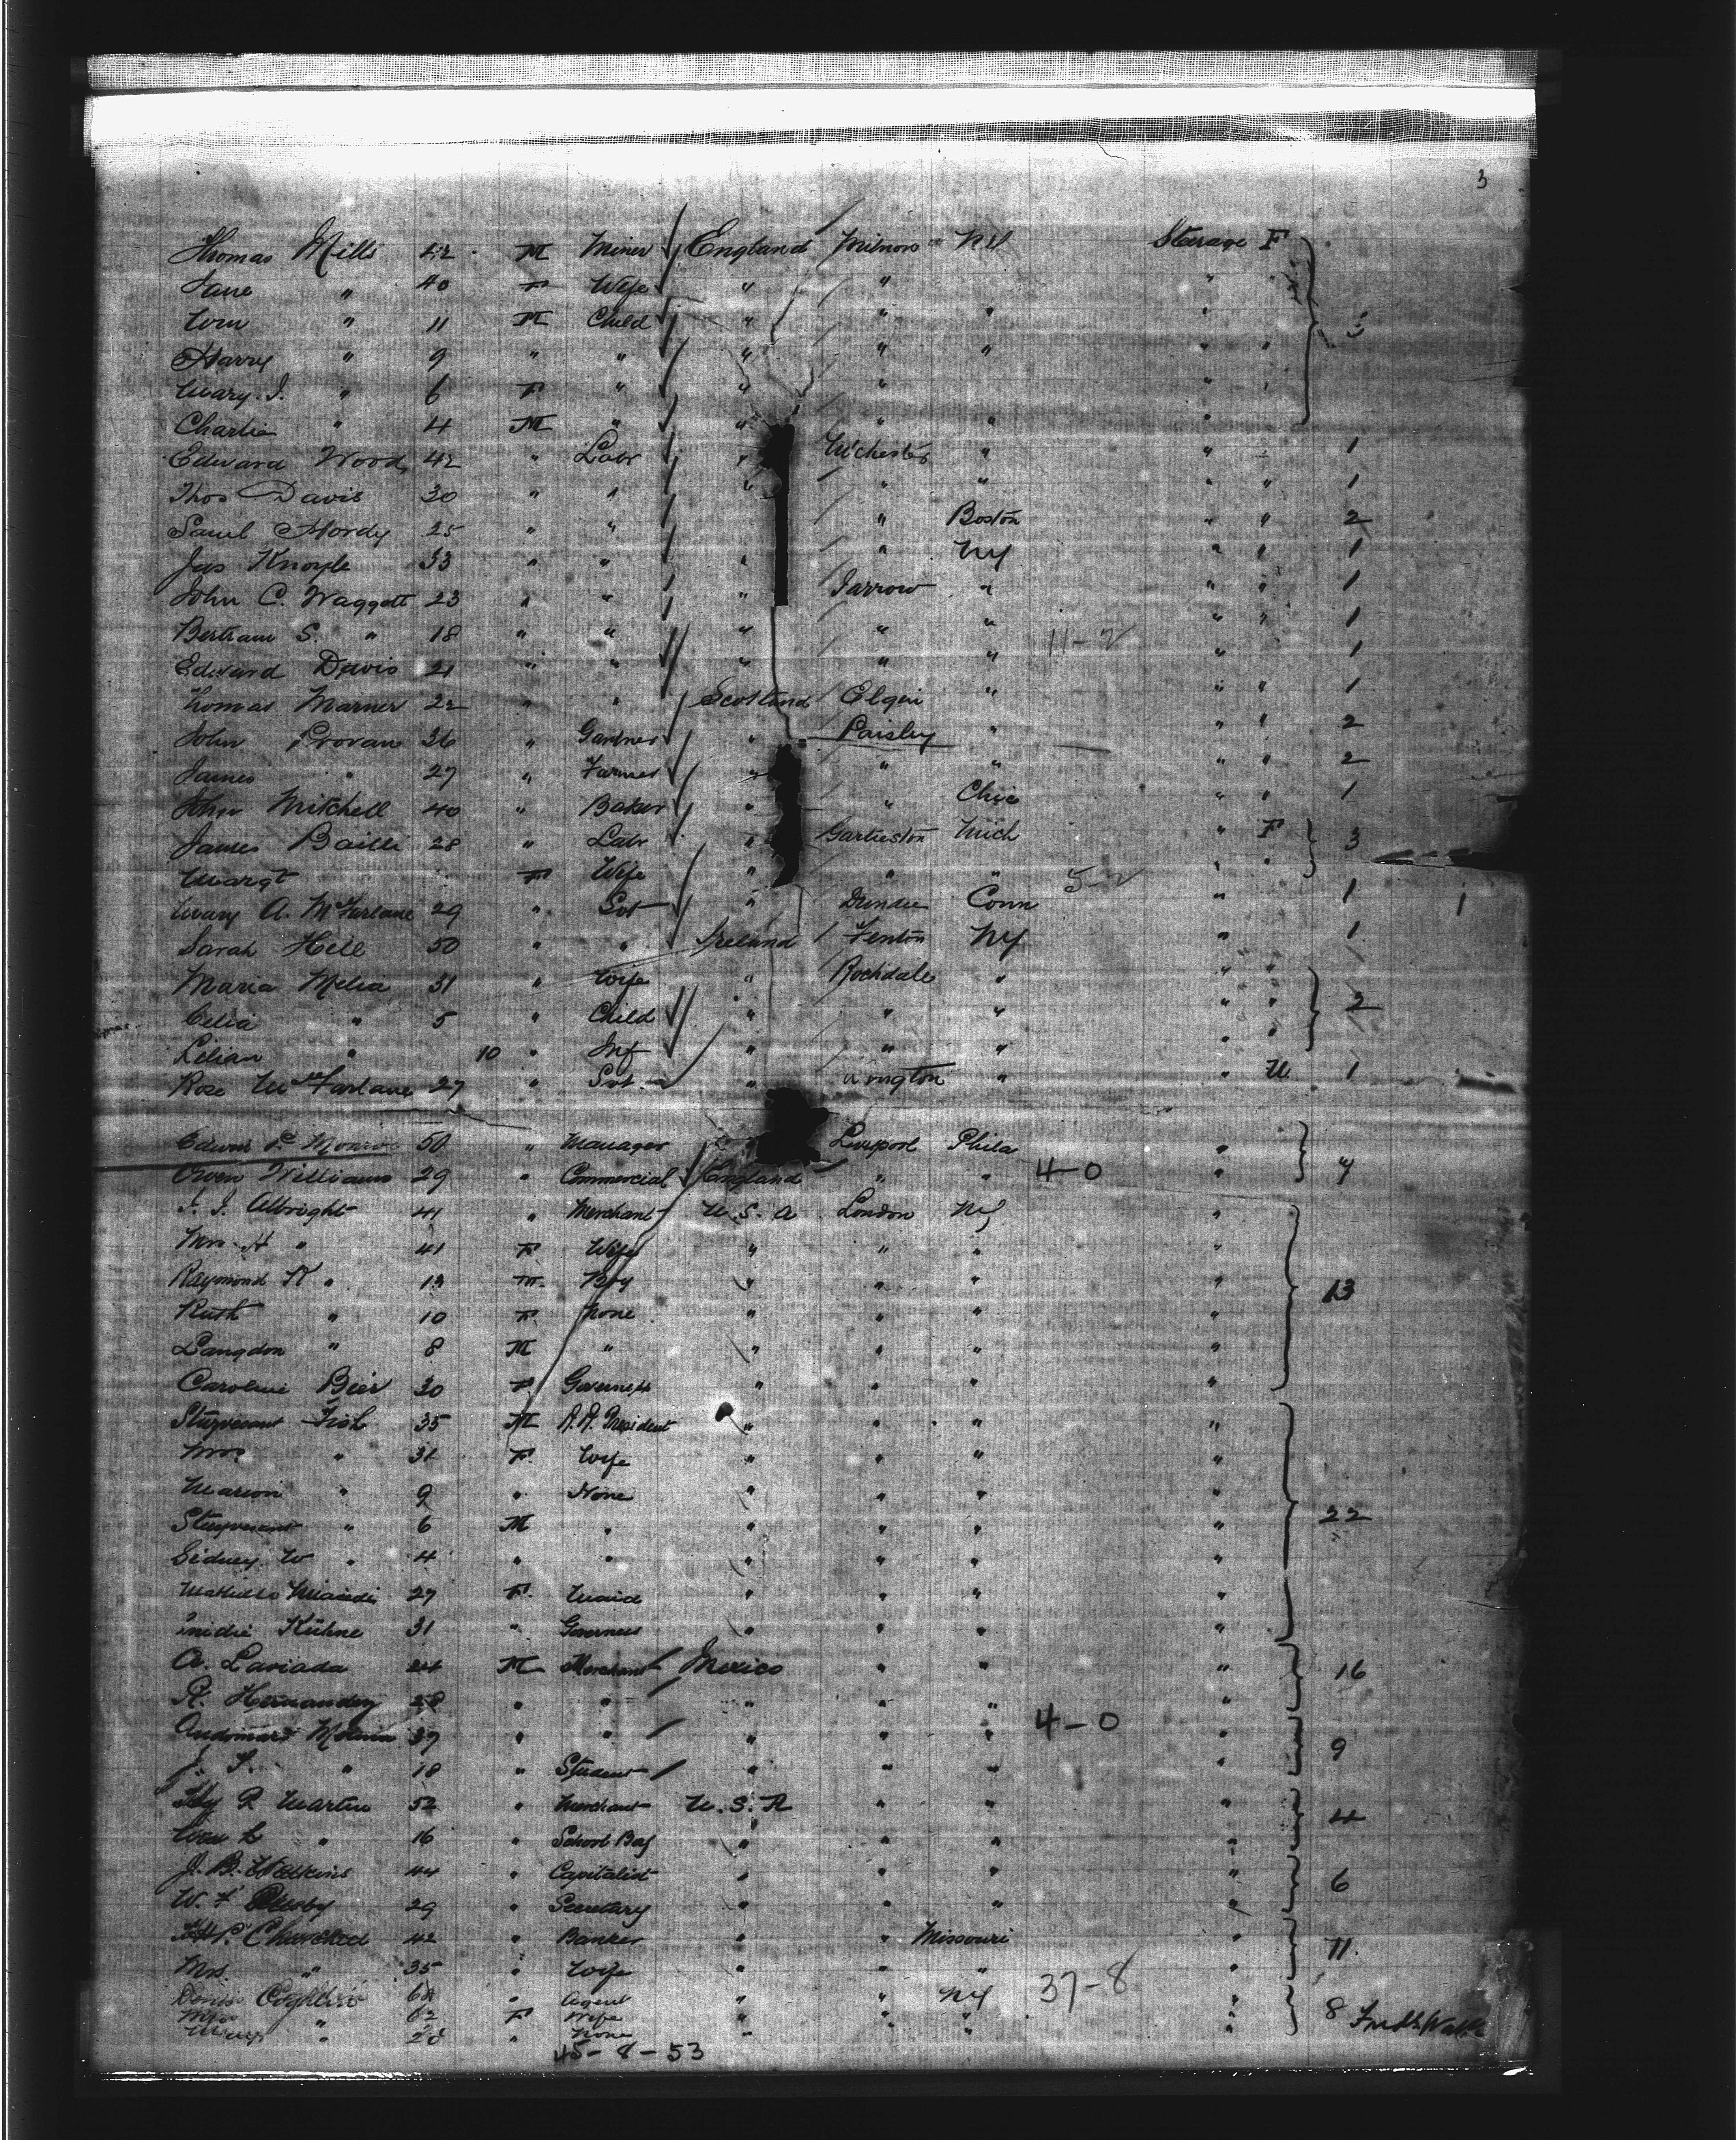 3
Thomas Mills 42 M Miner England Milnow NY Sterage F
Jane " 40 F Wife " "
Tom " 11 M Child " " "
Harry " 9 " " " " "
Mary J. " 6 F " " "
Charlie " 4 M " " " "
Edward Wood 42 " Labr " M'chester " " " 1
Thos Davis 30 " " " " " " " 1
Saml Hordy 25 " " " Boston " " 2
Jas Knoyle 33 " " " " NY " " 1
John C. Waggott 23 " " " Jarrow " " " 1
Bertram S. " 18 " " " " " 11-2 " " 1
Edward Davis 21 " " " " " " 1
Thomas Marner 22 " " Scotland Elgin " " " 1
John Provan 36 " Gardner " Paisley " " " 2
James " 27 " Farmer " " " " " 2
John Mitchell 40 " Baker " " Chic " " 1
James Bailli 28 " Labr " Garlieston Mich " F 3
Margt F Wife " " " 5-2
Mary A. McFarlane 29 " Svt " Dundee Conn " 1 1
Sarah Hill 50 " " Ireland Fenton NY " 1
Maria Melia 31 " Wife " Rochdale " " "
Celia " 5 " Child " " " " " 2
Lilian " 10 " Inf " " " "
Rose McFarlane 27 " Svt " " " U 1
Edwin P. Monroe 50 " Manager Liverpool Phila "
Owen Williams 29 " Commercial England " " 4-0 "
J. J. Albright 41 " Merchant U.S.A London NY "
Mrs H " 41 F Wife " " " "
Raymond H " 13 M. Boy " " " " 13
Ruth " 10 F. None " " " "
Langdon " 8 M " " " " "
Caroline Beir 30 F Governess " " " "
Stuyvesant Fish 35 M R.R. President " " " "
Mrs " 31 F. Wife " " " "
Marion " 9 " None " " " "
Stuyvesant " 6 M " " " " " 22
Sidney W " 4 " " " " "
27 F. Maid " " " "
Kühne 31 " Governess " " " "
A. Laviada 24 M Merchant Mexico " " " 16
R. Hernandez 28 " " " " " "
Molina 39 " " " " " 4-0 " 9
J. " 18 " Student " " " "
Hy R Martin 52 " Merchant U.S.A " " " 4
Wm L " 16 " School Boy " " " "
J. B. Watkins 44 " Capitalist " " " " 6
W. F. 29 " Secretary " " " "
Churchill 42 " Banker " " Missouri " 11
Mrs. " 35 " Wife " " " "
Denis 64 " Agent " " NY 37-8 "
Mrs " 62 F Wife " " " " 8
Mary " 28 " None " " "
45-8-53